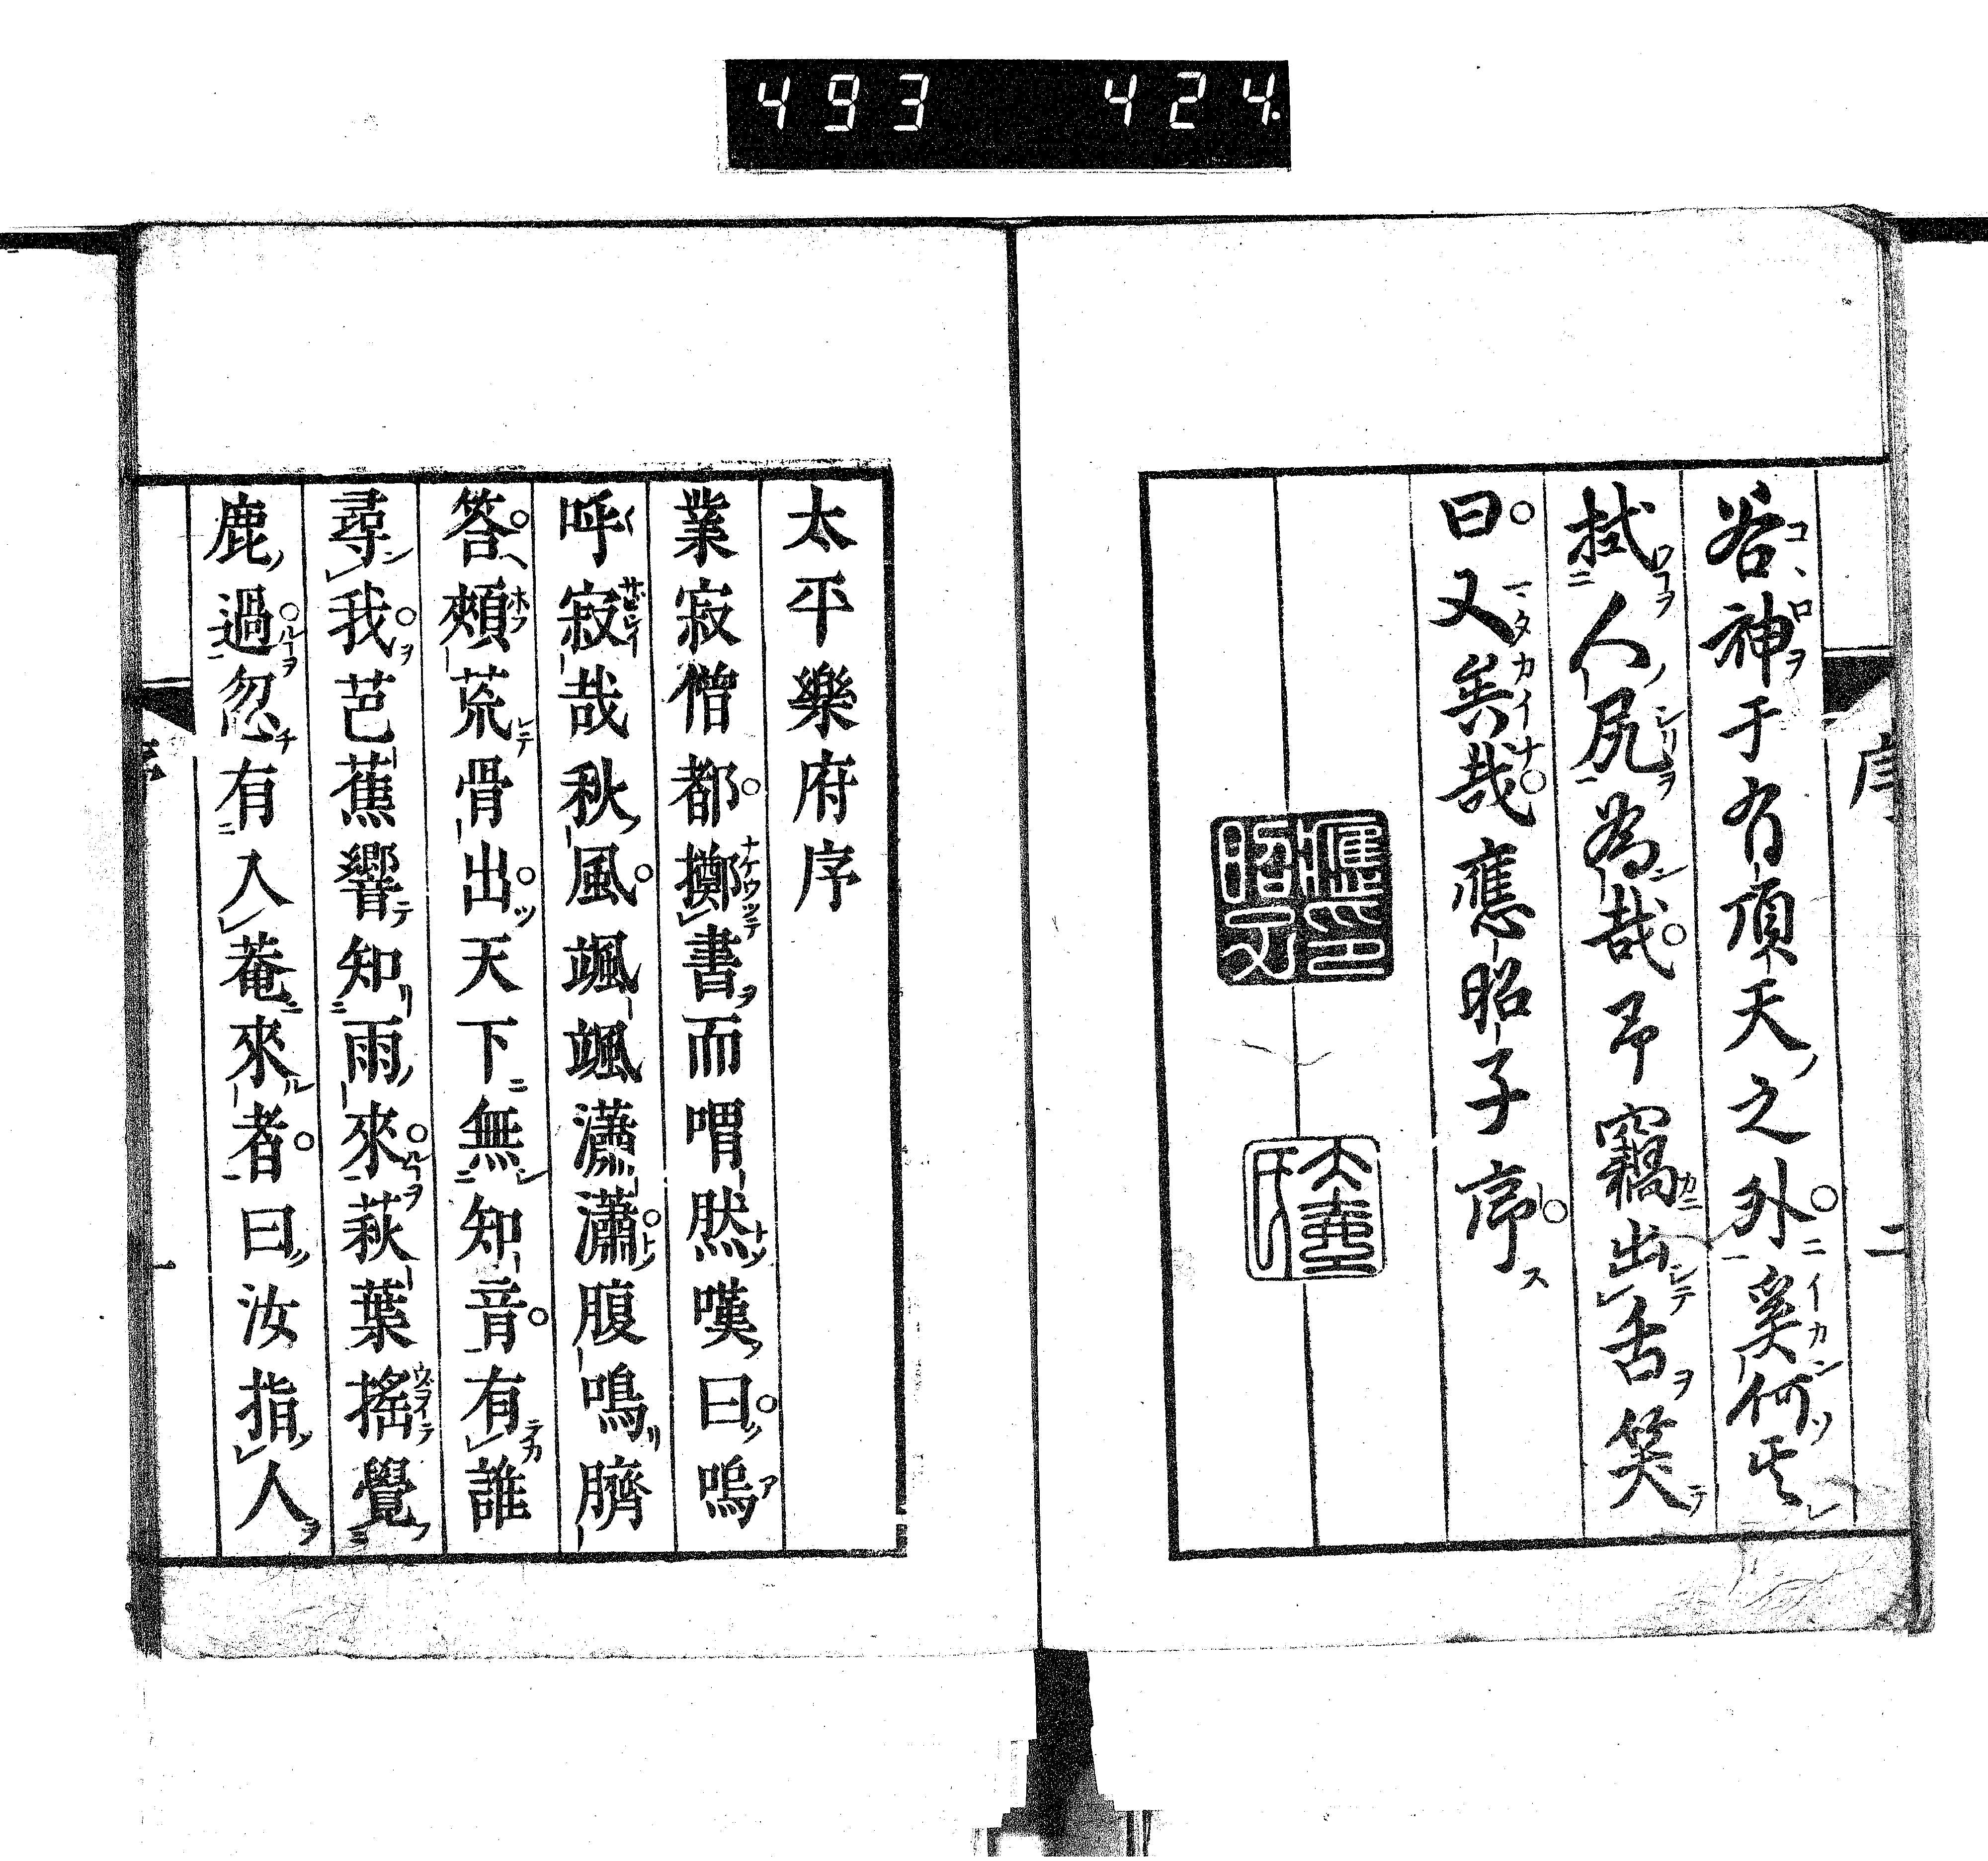 493 424.
序
二
谷神于有頂天之外奚何其
拭人尻為哉吊竊出舌笑
曰又矣哉應昭子序
太平樂府序
業寂僧都擲書而喟然嘆曰嗚
呼寂哉秋風颯颯瀟瀟腹鳴臍
答頰荒骨出天下無知音有誰
尋我芭蕉響知雨來萩葉搖覺
鹿過忽有入菴來者曰汝指人
序
一